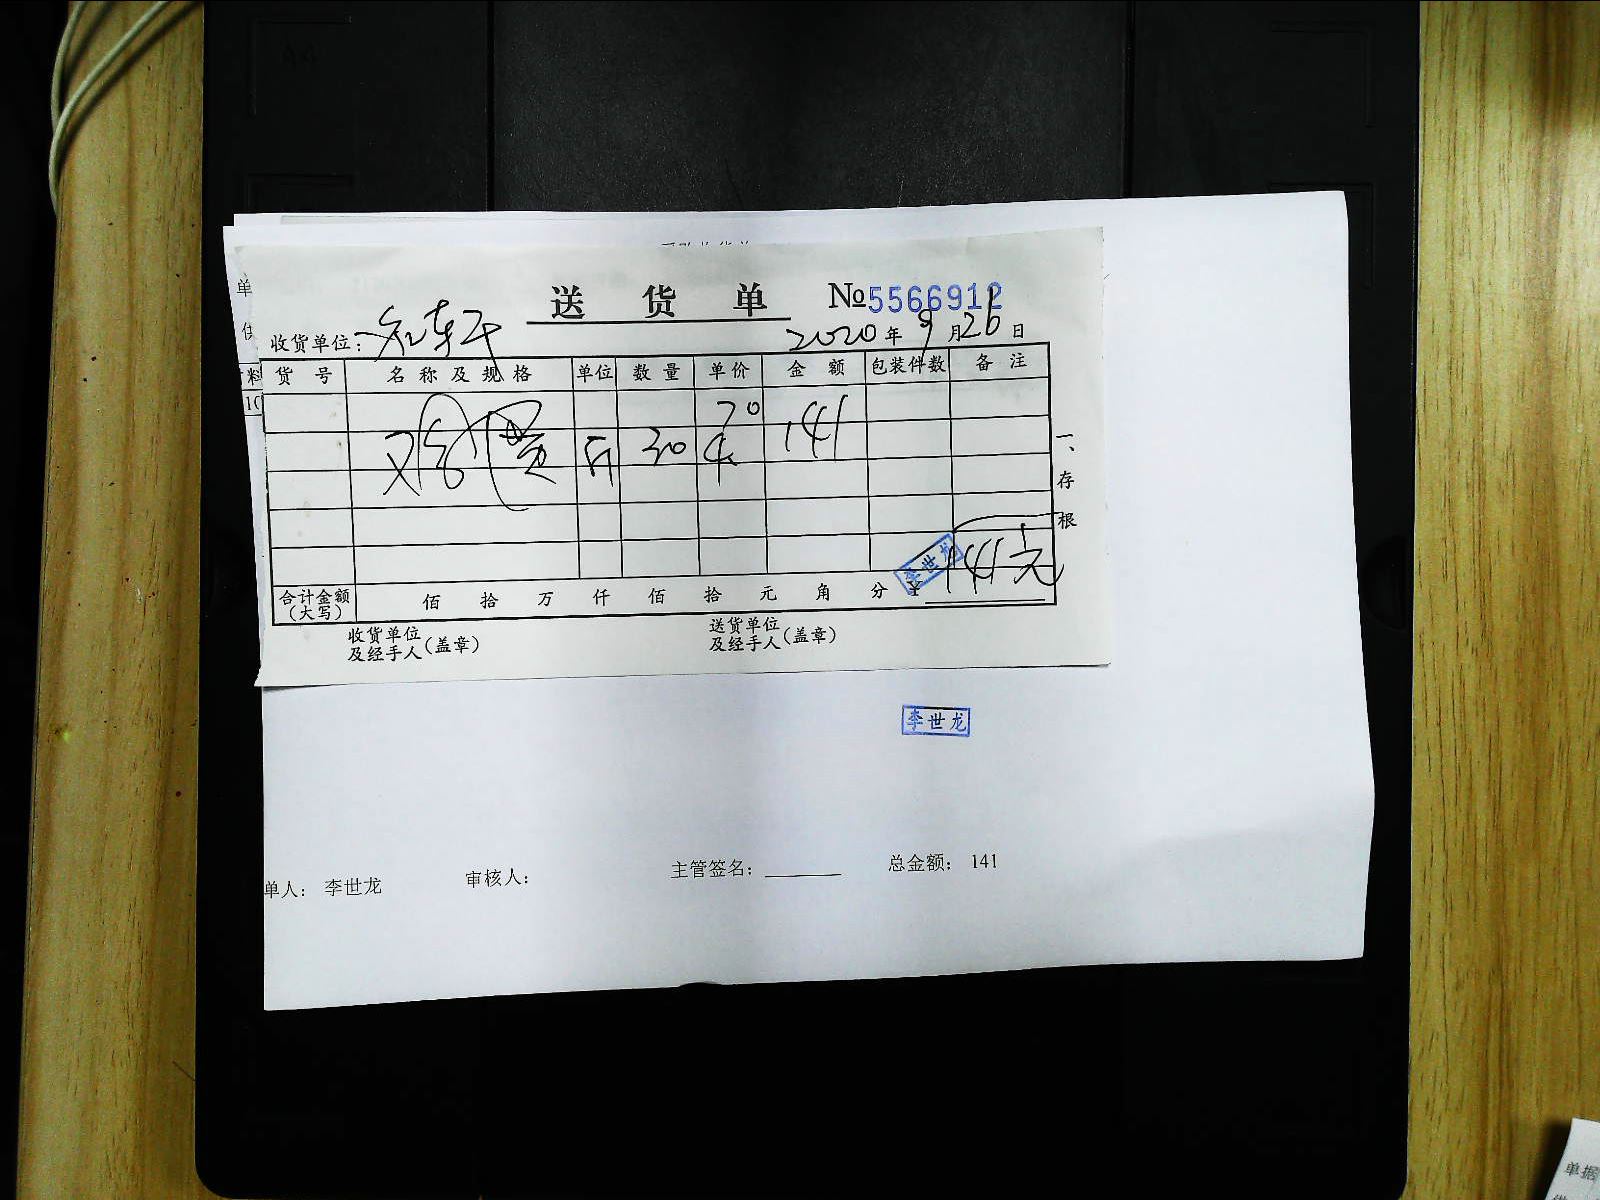 单
送货单 №5566912
收货单位：
2020年9月26日
料
10
货号 名称及规格 单位 数量 单价 金额 包装件数 备注
鸡蛋 斤 30 4.70 141
一、存根
141元
李世龙
合计金额（大写） 佰 拾 万 仟 佰 拾 元 角 分 ¥
收货单位及经手人（盖章）
送货单位及经手人（盖章）
李世龙
单人： 李世龙 审核人： 主管签名： 总金额： 141
单据